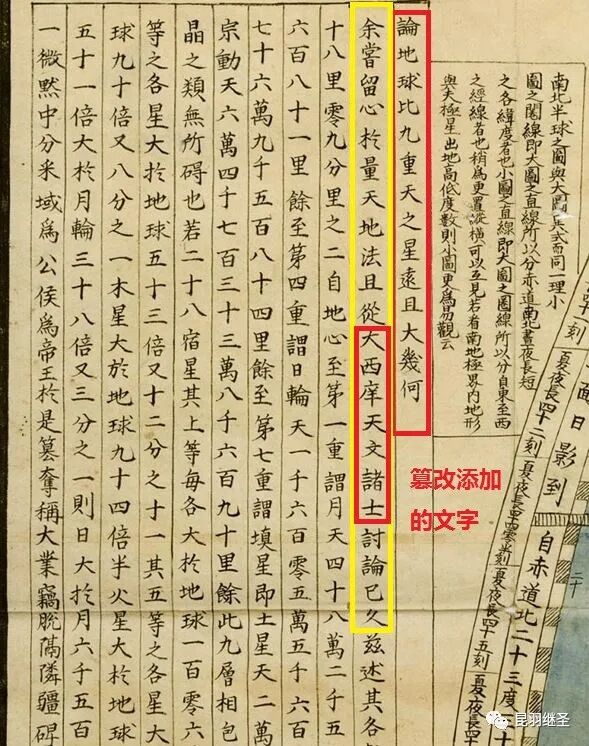 面日影到
自赤道北二十三度
二十
夏夜長四十二刻
夏夜長四十四零半刻
夏夜長四十五刻
南北半球之圖與大圖異式而同一理小
圖之圈線即大圖之直線所以分赤道南北晝夜長短
之各緯度者也小圖之直線即大圖之圈線所以分自東至西
之經線者也稍為更置縱橫可以互見若看南地極界内地形
與夫極星出地高低度數則小圖更為易觀云
論地球比九重天之星遠且大幾何
余嘗留心於量天地法且從大西庠天文諸士討論已久茲述其各
十八里零九分里之二自地心至第一重謂月天四十八萬二千五
六百八十一里餘至第四重謂日輪天一千六百零五萬五千六百
七十六萬九千五百八十四里餘至第七重謂填星即土星天二萬
宗動天六萬四千七百三十三萬八千六百九十里餘此九層相包
晶之類無所碍也若二十八宿星其上等每各大於地球一百零六
等之各星大於地球五十三倍又十二分之十一其五等之各星大
球九十倍又八分之一木星大於地球九十四倍半火星大於地球
五十一倍大於月輪三十八倍又三分之一則日大於月六千五百
一微黙中分采域為公侯為帝王於是篡奪稱大業竊脫隔隣疆碑
篡改添加
的文字
昆羽继圣